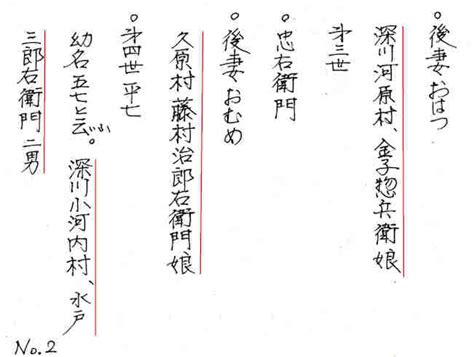 ○後妻おはつ
深川河原村、金子惣兵衛娘
第三世
○忠右衛門
○後妻おむめ
久原村藤村治郎右衛門娘
○第四世平七
幼名五七と云ふ。深川小河内村、水戸
三郎右衛門二男
No.2